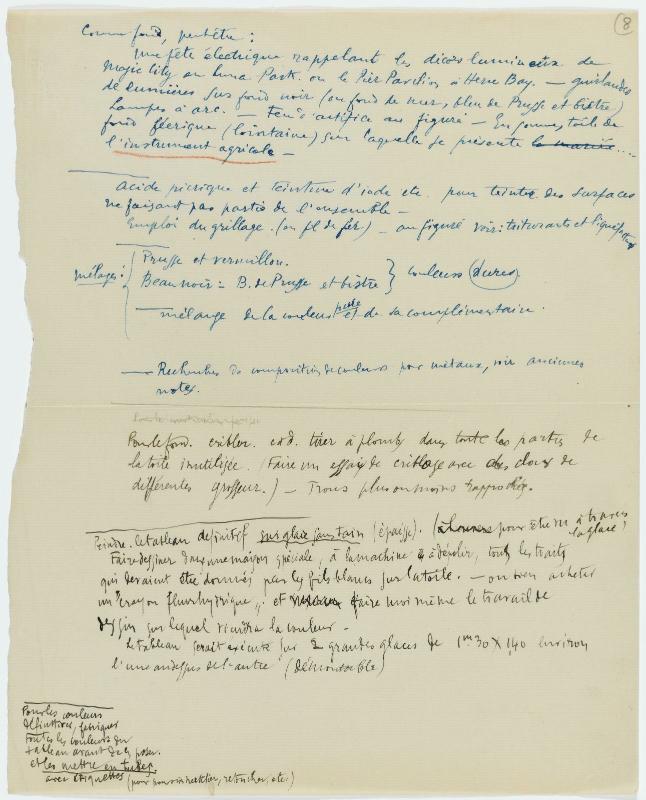 8
Comme fond, peut être :
Une fête électrique rappelant les décors lumineux de
Magic City ou Luna Park. ou le Pier Pavilion à Herne Bay. — guirlandes
de lumières sur fond noir (ou fond de mer, bleu de Prusse et bistre)
Lampes à arc. — Feu d'artifice au figuré — En somme, toile de
fond féerique (lointaine) sur laquelle se présente la mariée....
l'instrument agricole —
acide picrique et teinture d'iode etc. pour teinter des surfaces
ne faisant pas partie de l'ensemble —
Emploi du grillage. (ou fil de fer.) — au figuré voir:
mélanges :
Prusse et vermillon.
Beau noir = B. de Prusse et bistre } couleurs (dures)
— mélange de la couleur et de sa complémentaire.
— Recherches de composition de couleurs pour métaux, voir anciennes
notes.
Pour le fond. cribler. c.à.d. tirer à plomb dans toute les parties de
la toile inutilisée. (Faire un essai de criblage avec des clous de
différentes grosseur.) — Trous plus ou moins rapprochés.
Peindre. le tableau definitif sur glace sans tain (épaisse). ( pour être vu à travers
la glace)
Faire dessiner dans une maison spéciale, à la machine à dépolir, tous les traits
qui devaient être donnés par les fils blancs sur la toile. — ou bien acheter
un "crayon fluorhydrique" et faire moi même le travail de
dessin sur lequel viendra la couleur —
Le tableau serait exécuté sur 2 grandes glaces de 1m30 X 1,40 environ
l'une au dessus de l'autre (démontable)
Pour les couleurs
définitives, fabriquer
toutes les couleurs du
tableau avant de les poser.
et les mettre en tubes.
avec étiquettes (pour pouvoir, retoucher, etc.)